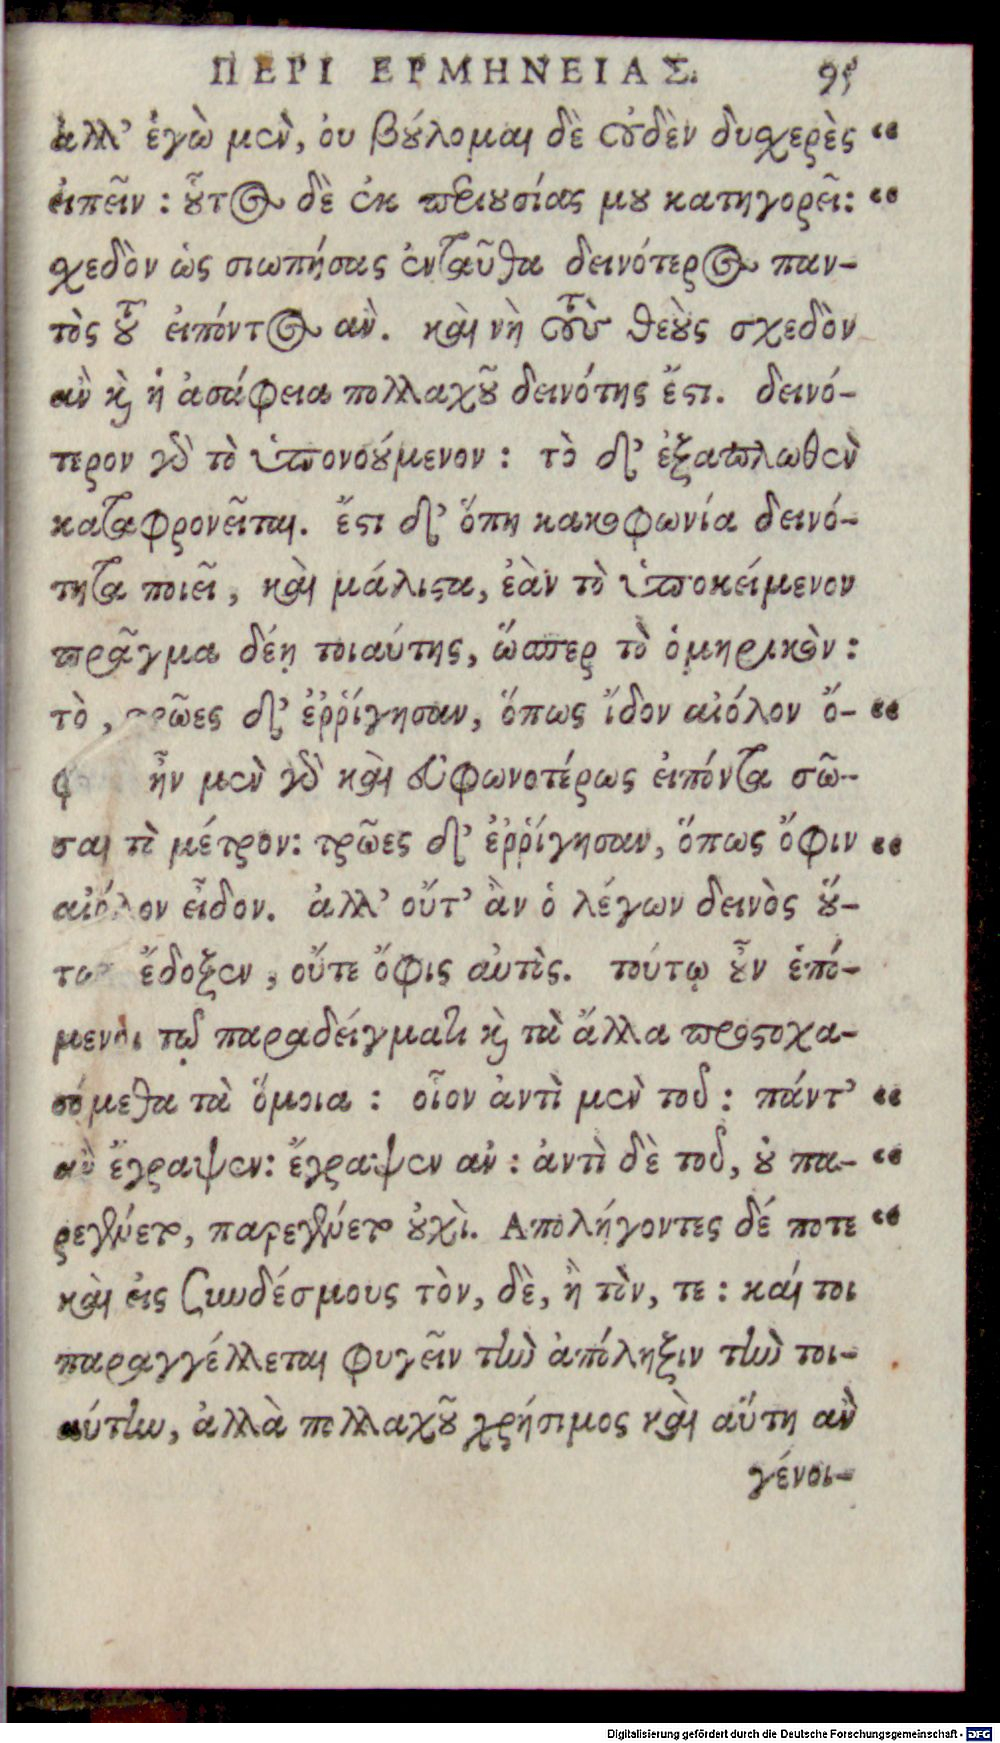 ΠΕΡΙ ΕΡΜΗΝΕΙΑΣ. 95
ἀλλ' ἐγὼ μὲν, ὀυ βούλομαι δὲ οὐδὲν δυσχερὲς “
ἐιπεῖν: οὗτος δὲ ἐκ περιουσίας μου κατηγορεῖ: “
σχεδὸν ὡς σιωπήσας ἐνταῦθα δεινότερος παν-
τὸς τοῦ ἐιπόντος ἂν. καὶ νὴ τοὺς θεοὺς σχεδὸν
ἂν καὶ ἡ ἀσάφεια πολλαχοῦ δεινότης ἔστι. δεινό-
τερον γὰρ τὸ ὑπονούμενον: τὸ δ' ἐξαπλωθὲν
καταφρονεῖται. ἔστι δ' ὅπη κακοφωνία δεινό-
τητα ποιεῖ, καὶ μάλιστα, ἐὰν τὸ ὑποκείμενον
πρᾶγμα δέῃ τοιαύτης, ὥσπερ τὸ ὁμηρικὸν:
τὸ, τρῶες δ' ἐῤῥίγησαν, ὅπως ἴδον αἰόλον ὄ- “
φ ἦν μὲν γὰρ καὶ εὐφωνοτέρως ἐιπόντα σῶ-
σαι τὸ μέτρον: τρῶες δ' ἐῤῥίγησαν, ὅπως ὄφιν “
αἰόλον εἶδον. ἀλλ' οὔτ' ἂν ὁ λέγων δεινὸς οὕ-
τως ἔδοξεν, οὔτε ὄφις αὐτὸς. τούτῳ οὖν ἑπό-
μενοι τῷ παραδείγματι καὶ τὰ ἄλλα προστοχα-
σόμεθα τὰ ὅμοια: οἷον ἀντὶ μὲν τοῦ: πάντ' “
ἂν ἔγραψεν: ἔγραψεν ἂν: ἀντὶ δὲ τοῦ, οὐ πα- “
ρεγένετο, παρεγένετο οὐχὶ. Απολήγοντες δέ ποτε “
καὶ εἰς συνδέσμους τὸν, δὲ, ἢ τὸν, τε: καίτοι
παραγγέλλεται φυγεῖν τὴν ἀπόληξιν τὴν τοι-
αύτην, ἀλλὰ πολλαχοῦ χρήσιμος καὶ αὕτη ἂν
γένοι-
Digitalisierung gefördert durch die Deutsche Forschungsgemeinschaft - DFG